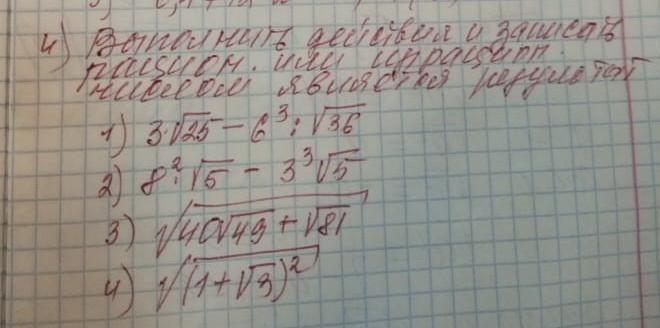 4) Выполнить действия и записать
рацион. или иррацион.
числом является результат
1) 3·√25 - 6³ : √36
2) 8²·√5 - 3³√5
3) √(40√49 + √81)
4) √(1+√3)²